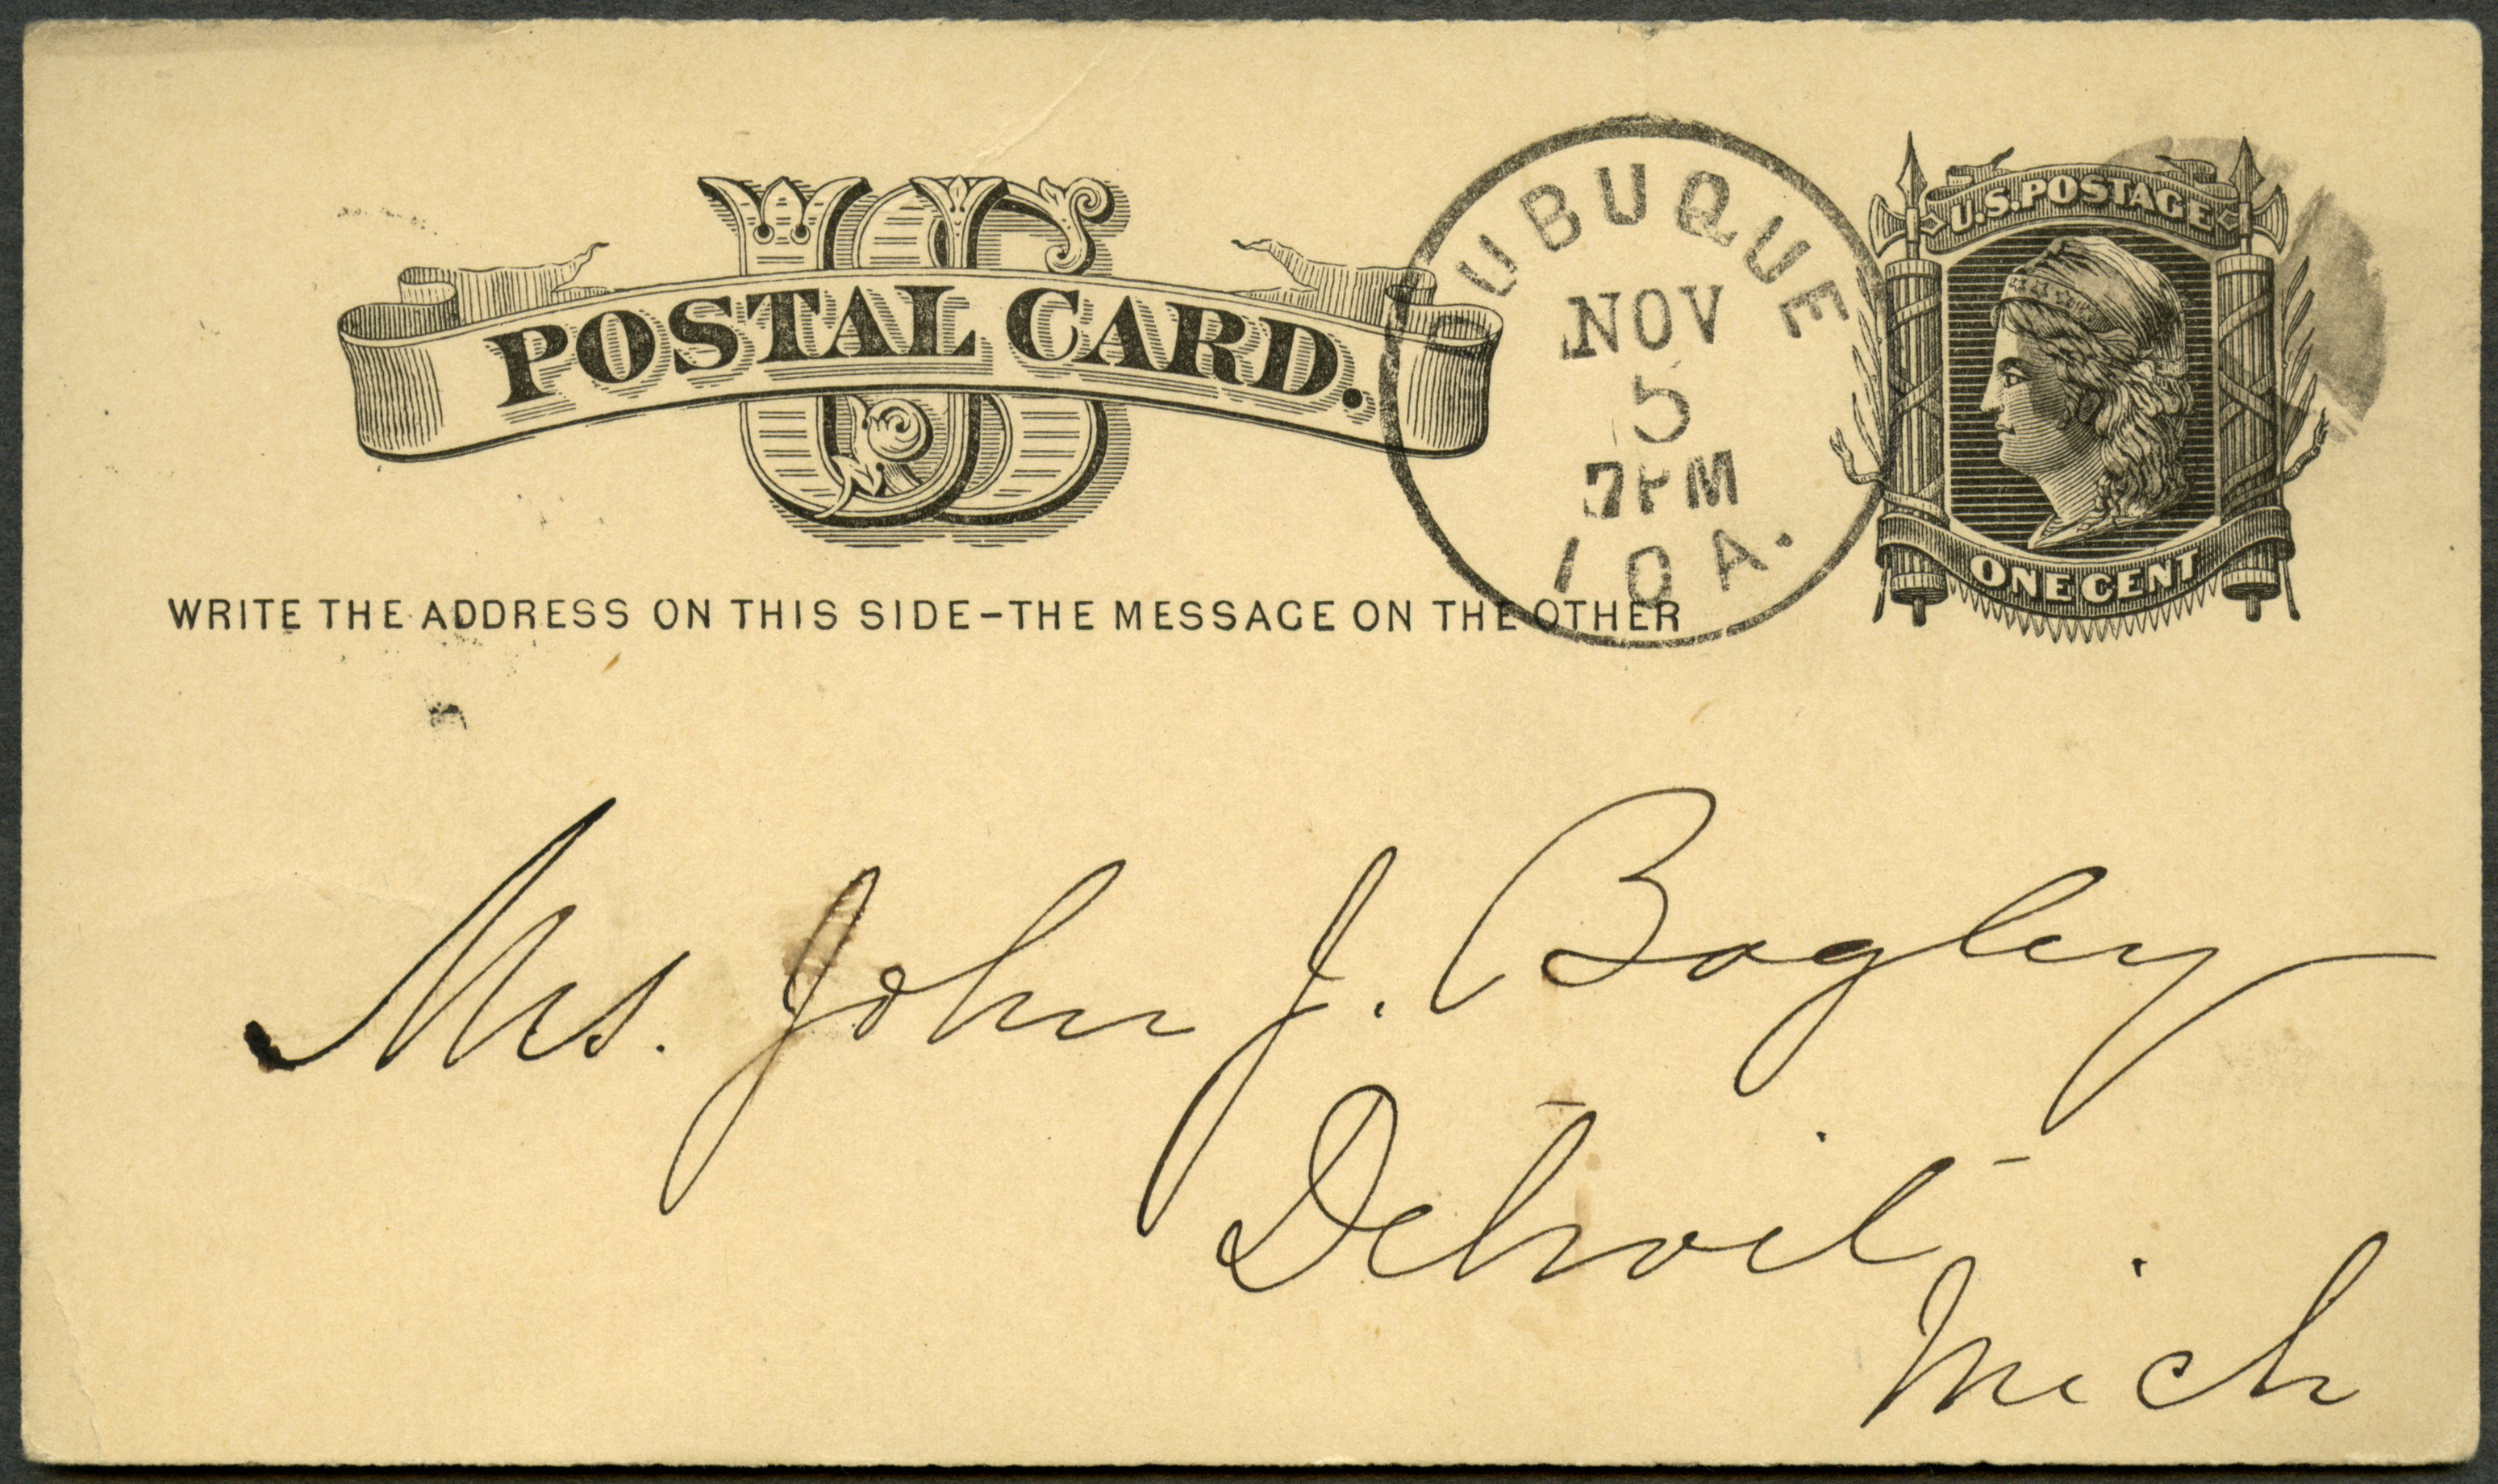 US
POSTAL CARD.
WRITE THE ADDRESS ON THIS SIDE-THE MESSAGE ON THE OTHER
DUBUQUE
NOV
5
7PM
IOA.
U.S. POSTAGE
ONE CENT
Mrs. John J. Bagley
Detroit.
Mich